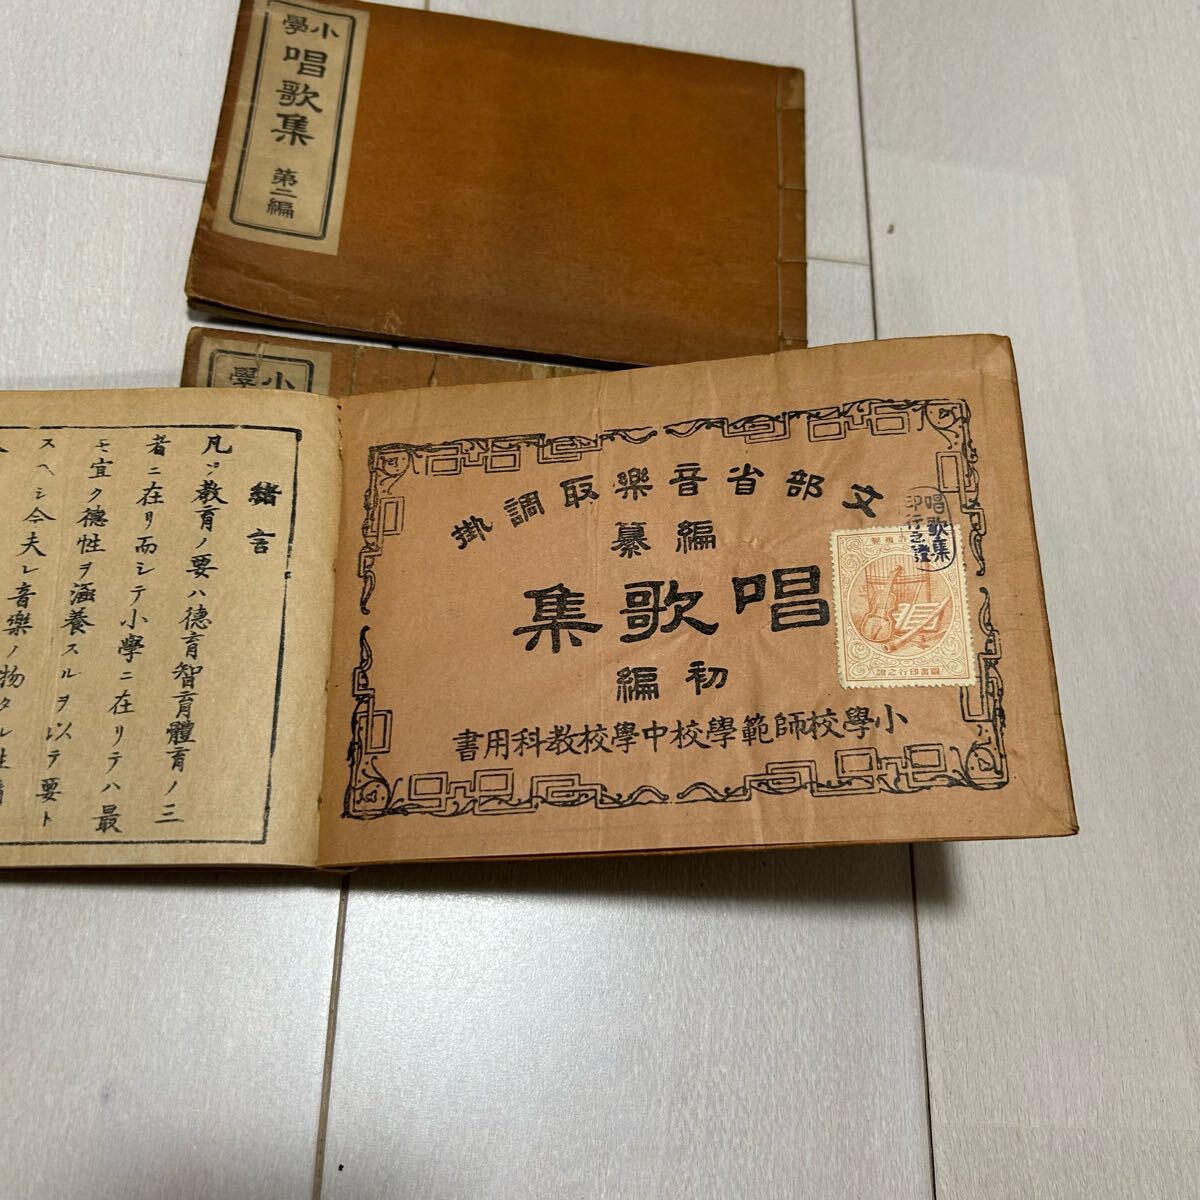 小學
唱歌集
第二編
小學
文部省音樂取調掛
編纂
唱歌集
初編
小學校師範學校中學校教科用書
唱歌集
印行之證
圖書印行之證
緒言
凡ソ教育ノ要ハ德育智育體育ノ三
者ニ在リ而シテ小學ニ在リテハ最
モ宜ク德性ヲ涵養スルヲ以テ要ト
スヘシ今夫レ音樂ノ物タル性情